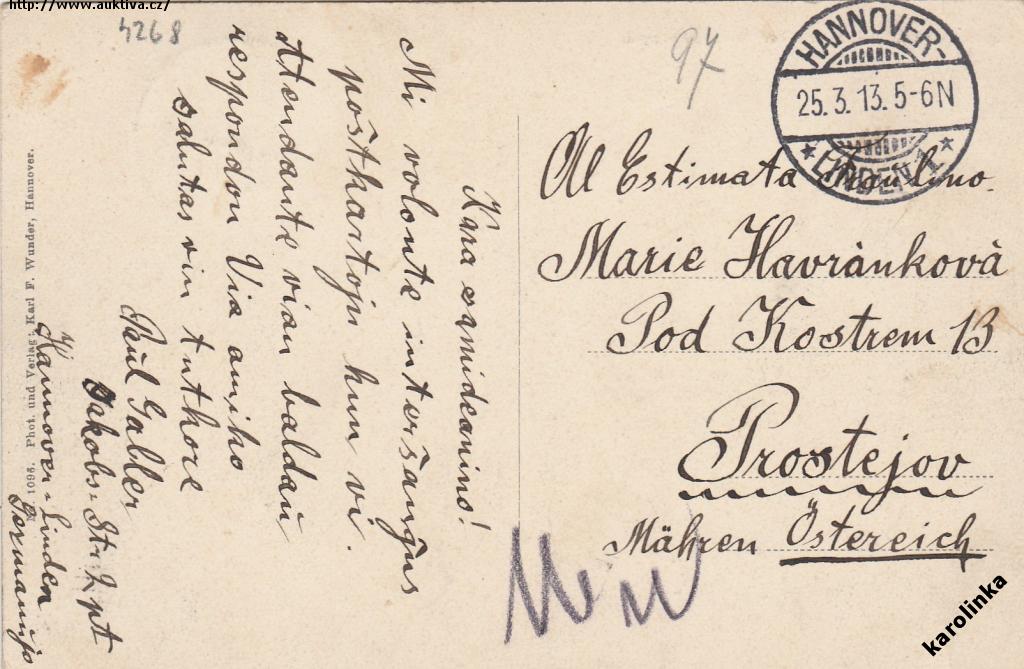 http://www.auktiva.cz/
4268
97
HANNOVER-
25.3.13.5-6N
LINDEN
Al Estimata Fraŭlino.
Marie Havránková
Pod Kostrem 13
Prostejov
Mähren Östereich
Kara samideanino!
Mi volonte interŝanĝus
poŝtkartojn kun vi.
Atendante vian baldaŭ
respondon Via amiko
salutas vin tutkore
Paul Galler
Jakobs-Str. 2 pt
Hannover-Linden
Germanujo
1096. Phot. und Verlag: Karl F. Wunder, Hannover.
karolinka